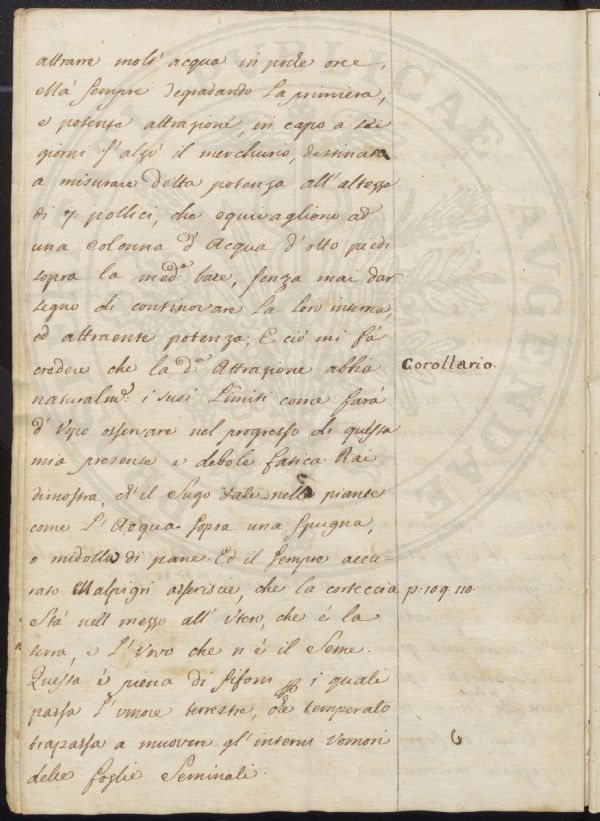 attrarre molt' acqua in poche ore,
mà sempre degradando la primiera,
e potente attrazione, in capo a sei
giorni s'alzò il merchurio, destinato
a misurare detta potenza all' altezza
di 7: pollici, che equivagliono ad
una colonna d' Acqua d' otto piedi
sopra la med:ª base, senza mai dar
segno di continovare la loro interna,
ed attraente potenza; E ciò mi fà
credere che la d:ª Attrazione abbia
Corollario.
naturalm:ᵉ i suoi Limiti come farà
d' Vopo osservare nel progresso di questa
mia presente e debole fatica. Rai
dimostra, ch' il Sugo sale nelle piante
come L' Acqua sopra una spugna,
o midolla di pane. Ed il sempre accu-
rato Malpigri asseriscie, che la corteccia
p: 109. 110.
Stà nell mezzo all' Vtero, che é la
terra, e L' Vovo che n' é il Seme.
Questa é piena di sifoni p i quali
passa L' vmore terrestre, che temperato
trapassa a muovere gl' interni Vomori
delle foglie Seminali.